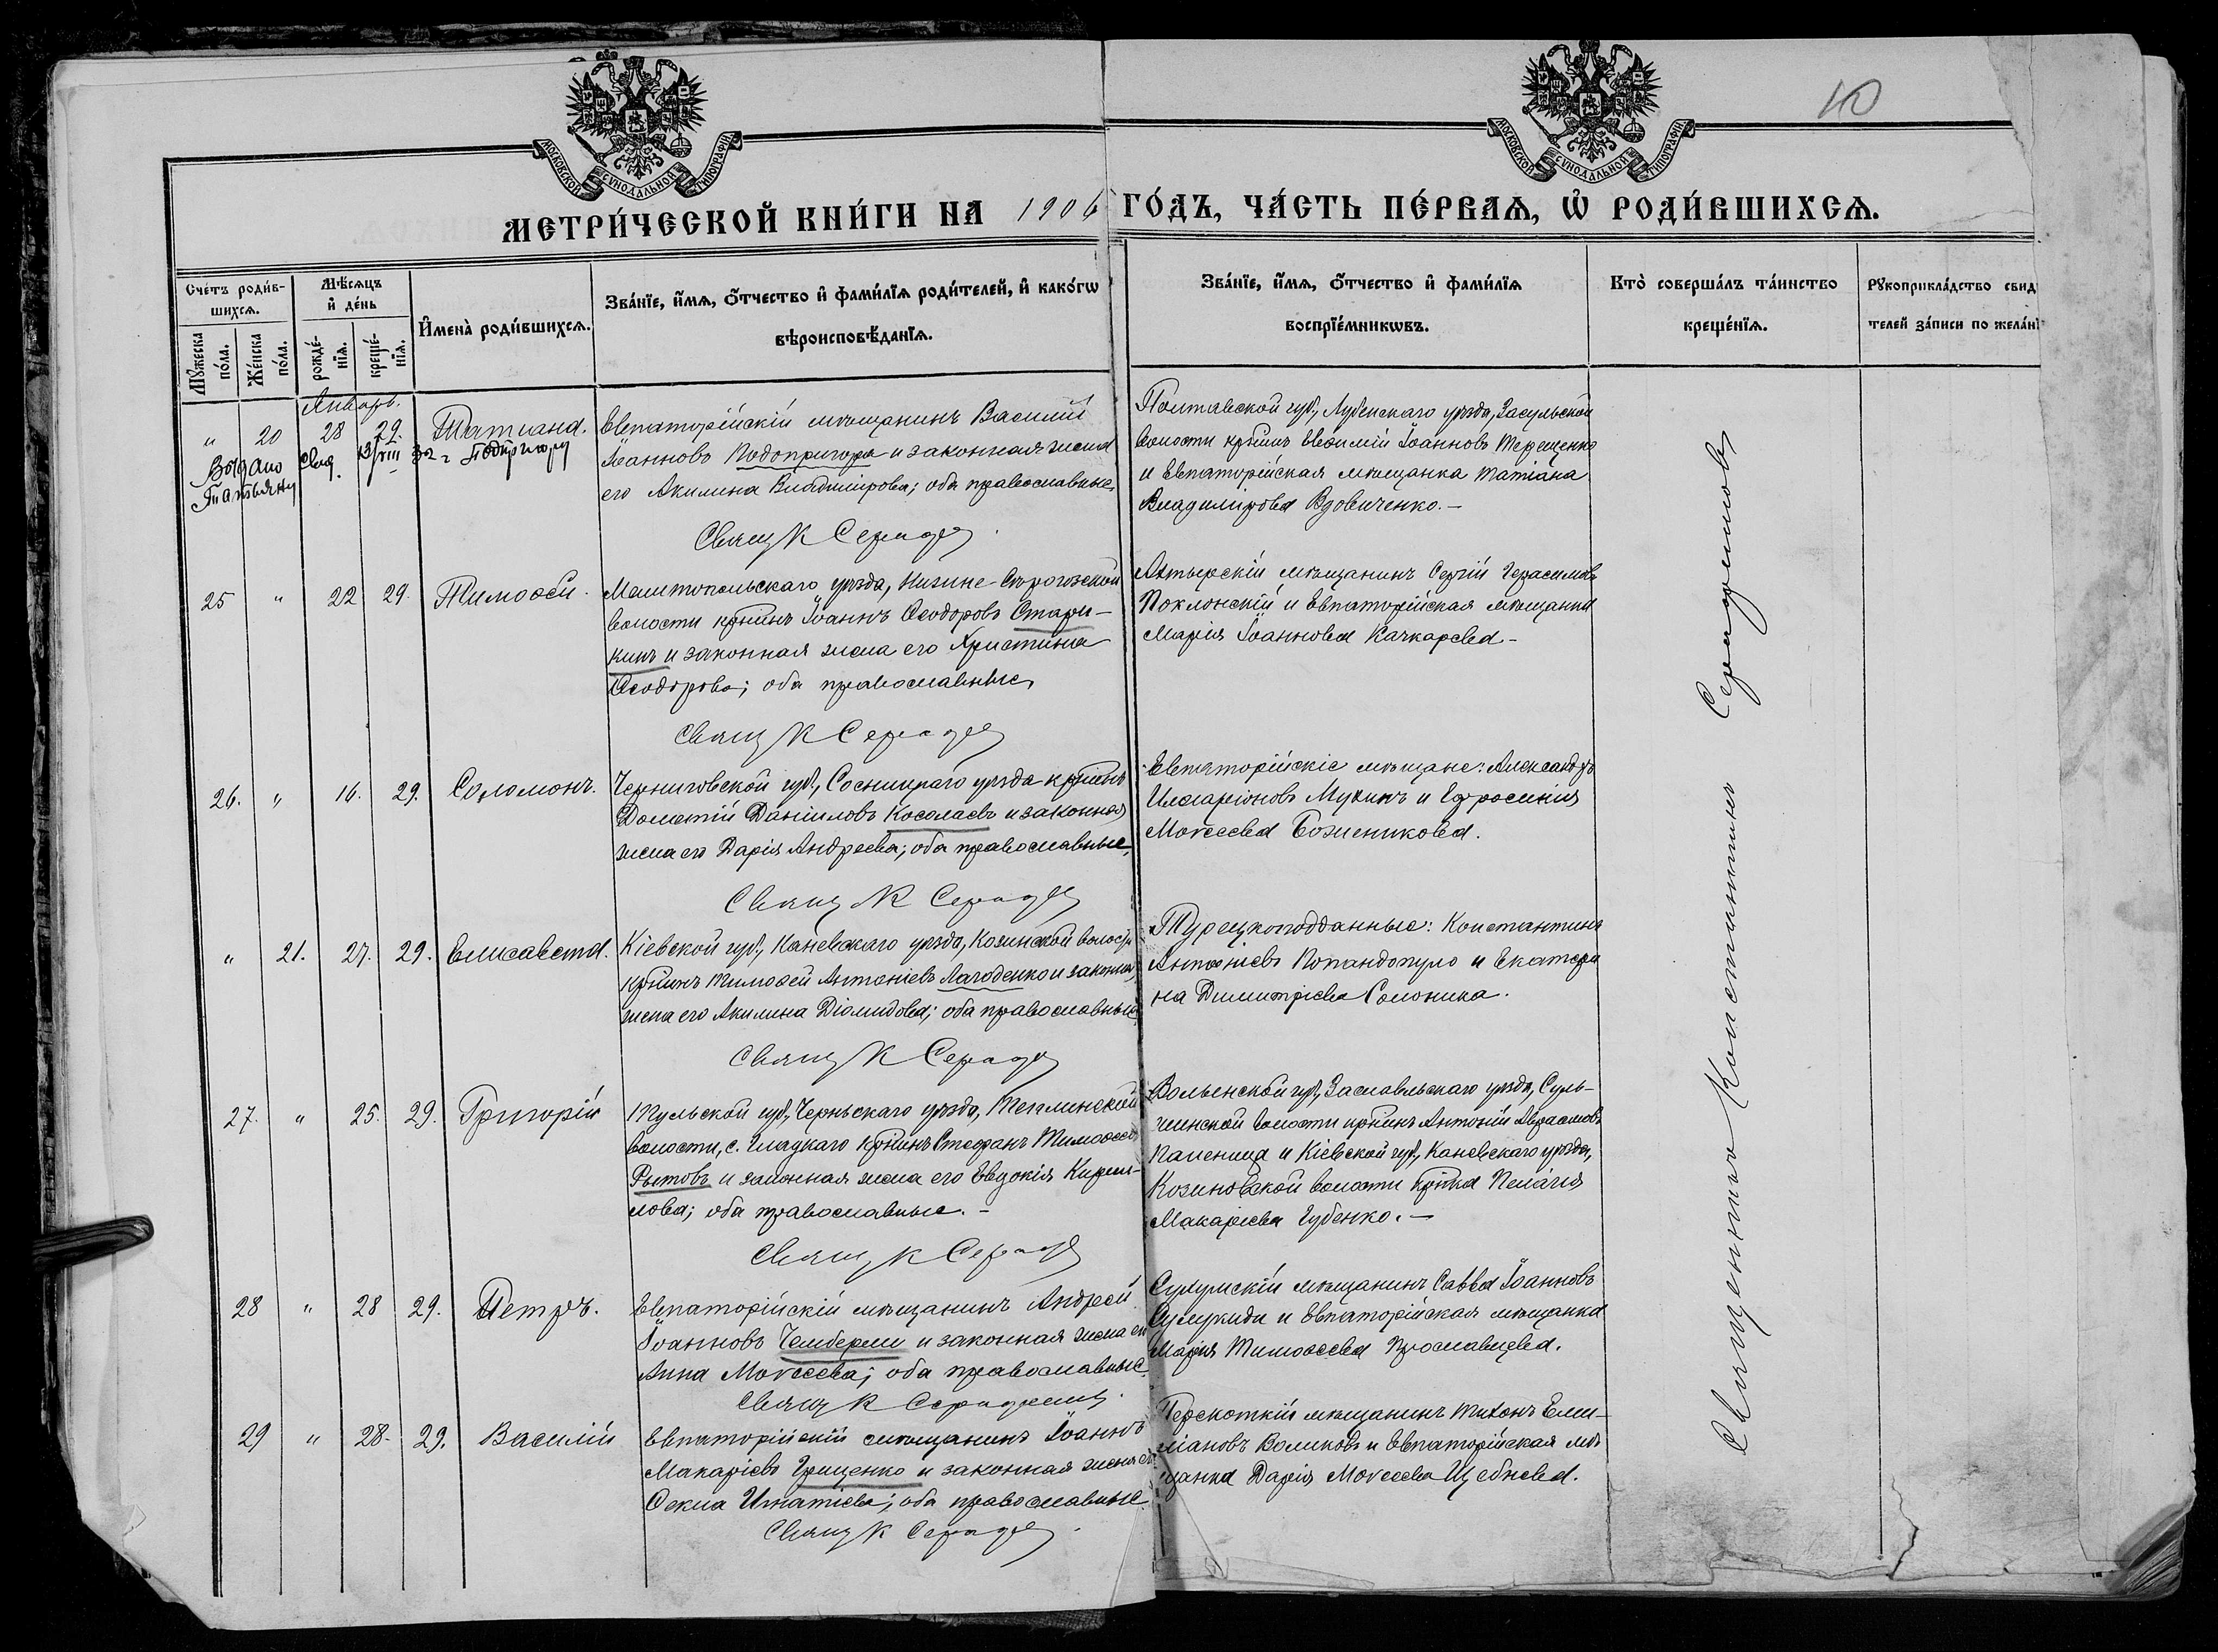 МОСКОВСКОЙ СѴНОДАЛЬНОЙ ТИПОГРАФІИ
МОСКОВСКОЙ СѴНОДАЛЬНОЙ ТИПОГРАФІИ
10
МЕТРИ́ЧЕСКОЙ КНИ́ГИ НА 1906 ГО́ДЪ, ЧА́СТЬ ПЕ́РВАѦ, Ѡ҆ РОДИ́ВШИХСѦ.
Сче́тъ роди́в-
шихсѧ.
Мꙋ́жеска
по́ла.
Же́нска
по́ла.
Мѣ́сѧцъ
и҆ де́нь
рожде́-
нїѧ.
креще́-
нїѧ.
И҆мена̀ роди́вшихсѧ.
Зва́нїе, и҆́мѧ, ѻ҆́тчество и҆ фами́лїѧ роди́телей, и҆ како́гѡ
вѣроисповѣ́данїѧ.
Зва́нїе, и҆́мѧ, ѻ҆́тчество и҆ фами́лїѧ
воспрїе́мникѡвъ.
Кто̀ соверша́лъ та́инство
креще́нїѧ.
Рꙋкоприкла́дство свид
телей за́писи по жела́нї
Январь.
" 20 28 29. Татіана.
Выдано свид. 13/VIII 32 г
Татьяну
Евпаторійскій мѣщанинъ Василій
Іоанновъ Подопригора и законная жена
его Акилина Владимірова; оба православные.
Свящ К Серафим
Полтавской губ, Лубенскаго уѣзда, Засульской
волости крнинъ Евѳимій Іоанновъ Терещенко
и Евпаторійская мѣщанка Татіана
Владимірова Вдовиченко. —
25 " 22 29. Тимоѳей.
Мелитопольскаго уѣзда, Нижне-Сѣрогозской
волости крнинъ Іоаннъ Ѳеодоровъ Стари-
кинъ и законная жена его Христина
Ѳеодорова; оба православные,
Свящ К Серафим
Ахтырскій мѣщанинъ Сергій Герасимовъ
Поклонскій и Евпаторійская мѣщанка
Марія Іоаннова Качкарева —
26. " 16. 29. Соломонъ.
Черниговской губ., Сосницкаго уѣзда крнинъ
Дометій Даніиловъ Косолаевъ и законная
жена его Дарія Андреева; оба православные,
Свящ К Серафим
Евпаторійскіе мѣщане: Александръ
Иларіоновъ Мухинъ и Ефросинія
Моѵсеева Боженикова.
" 21. 27. 29. Елисавета.
Кіевской губ., Каневскаго уѣзда, Козинской волости
крнинъ Тимоѳей Антоніевъ Лагоденко и законная
жена его Акилина Діомидова; оба православные.
Свящ К Серафим
Турецкоподданные: Константинъ
Антоніевъ Попандопуло и Екатери
на Димитріева Солоника.
27. " 25. 29. Григорій
Тульской губ., Чернскаго уѣзда, Теплинской
волости, с. Гладкаго крнинъ Стефанъ Тимоѳеевъ
Рытовъ и законная жена его Евдокія Кирил-
лова; оба православные. —
Свящ К Серафим
Волынской губ, Заславльскаго уѣзда, Суль-
жинской волости крнинъ Антоній Аврамовъ
Паленица и Кіевской губ, Каневскаго уѣзда,
Козиновской волости крнка Пелагія
Макаріева Губенко. —
28 " 28 29. Петръ.
Евпаторійскій мѣщанинъ Андрей
Іоанновъ Челиберли и законная жена его
Анна Моѵсеева; оба православные.
Свящ К Серафимов
Сухумскій мѣщанинъ Савва Іоанновъ
Сулукиди и Евпаторійская мѣщанка
Марія Тимоѳеева Прославцева.
29 " 28. 29. Василій
Евпаторійскій мѣщанинъ Іоаннъ
Макаріевъ Грищенко и законная жена его
Ѳекла Игнатіева; оба православные.
Свящ К Серафим
Перекопскій мѣщанинъ Тихонъ Емил-
ліановъ Воликовъ и Евпаторійская мѣ
щанка Дарія Моѵсеева Щебнева.
Священникъ Константинъ Серафимовъ